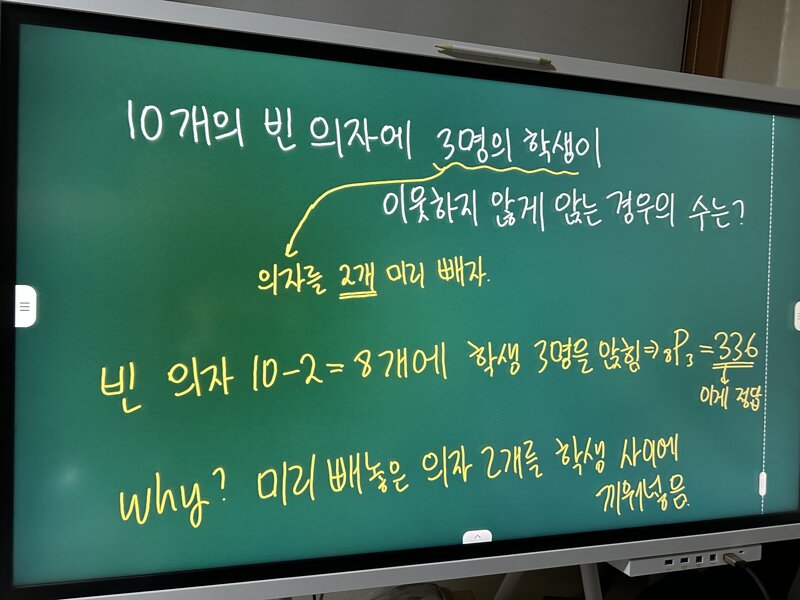 10개의 빈 의자에 3명의 학생이
이웃하지 않게 앉는 경우의 수는?
의자를 2개 미리 빼자.
빈 의자 10-2=8개에 학생 3명을 앉힘⇒ ₈P₃ = 336
이게 정답
why? 미리 빼놓은 의자 2개를 학생 사이에
끼워넣음.